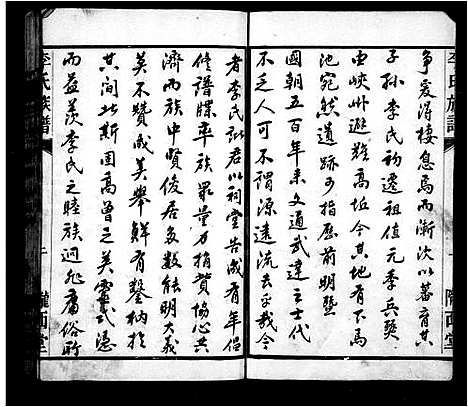 李氏族譜
爭爰得棲息焉而漸次以蕃育其
子孫李氏初遷祖值元季兵燹
由峽州避難高坵今其地有下馬
池宛然遺跡可指歷前明暨
國朝五百年來文通武達之士代
不乏人可不謂源遠流長乎哉今
一
隴西堂
者李氏諸君以祠堂告成有年倡
修譜牒率族眾量力捐貲協心共
濟而族中賢俊居多數能明大義
莫不贊成美舉鮮有鑿枘於
其間此斯固高曾之美靈式憑
而益羨李氏之睦族迥非庸俗所
李氏族譜
隴西堂